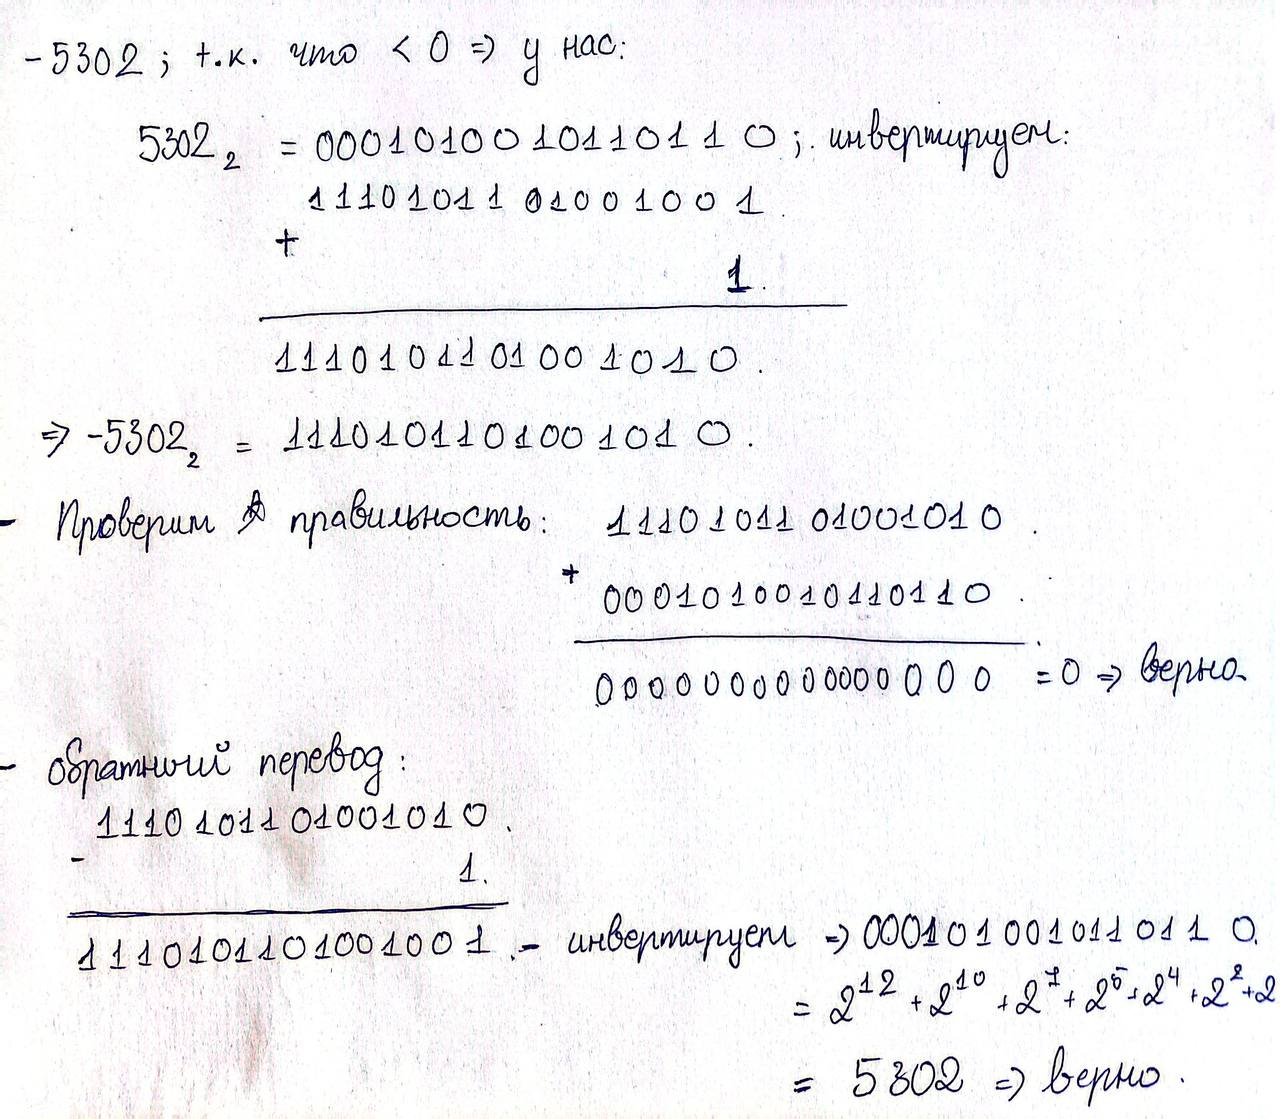 -5302; т.к. что < 0 => у нас:
5302₂ = 0001010010110110; инвертируем:
1110101101001001.
+
1.
1110101101001010.
=> -5302₂ = 1110101101001010.
- Проверим правильность: 1110101101001010.
+ 0001010010110110.
0000000000000000 = 0 => верно.
- обратный перевод:
1110101101001010.
- 1.
1110101101001001. - инвертируем => 0001010010110110.
= 2¹² + 2¹⁰ + 2⁷ + 2⁵ + 2⁴ + 2² + 2
= 5302 => верно.